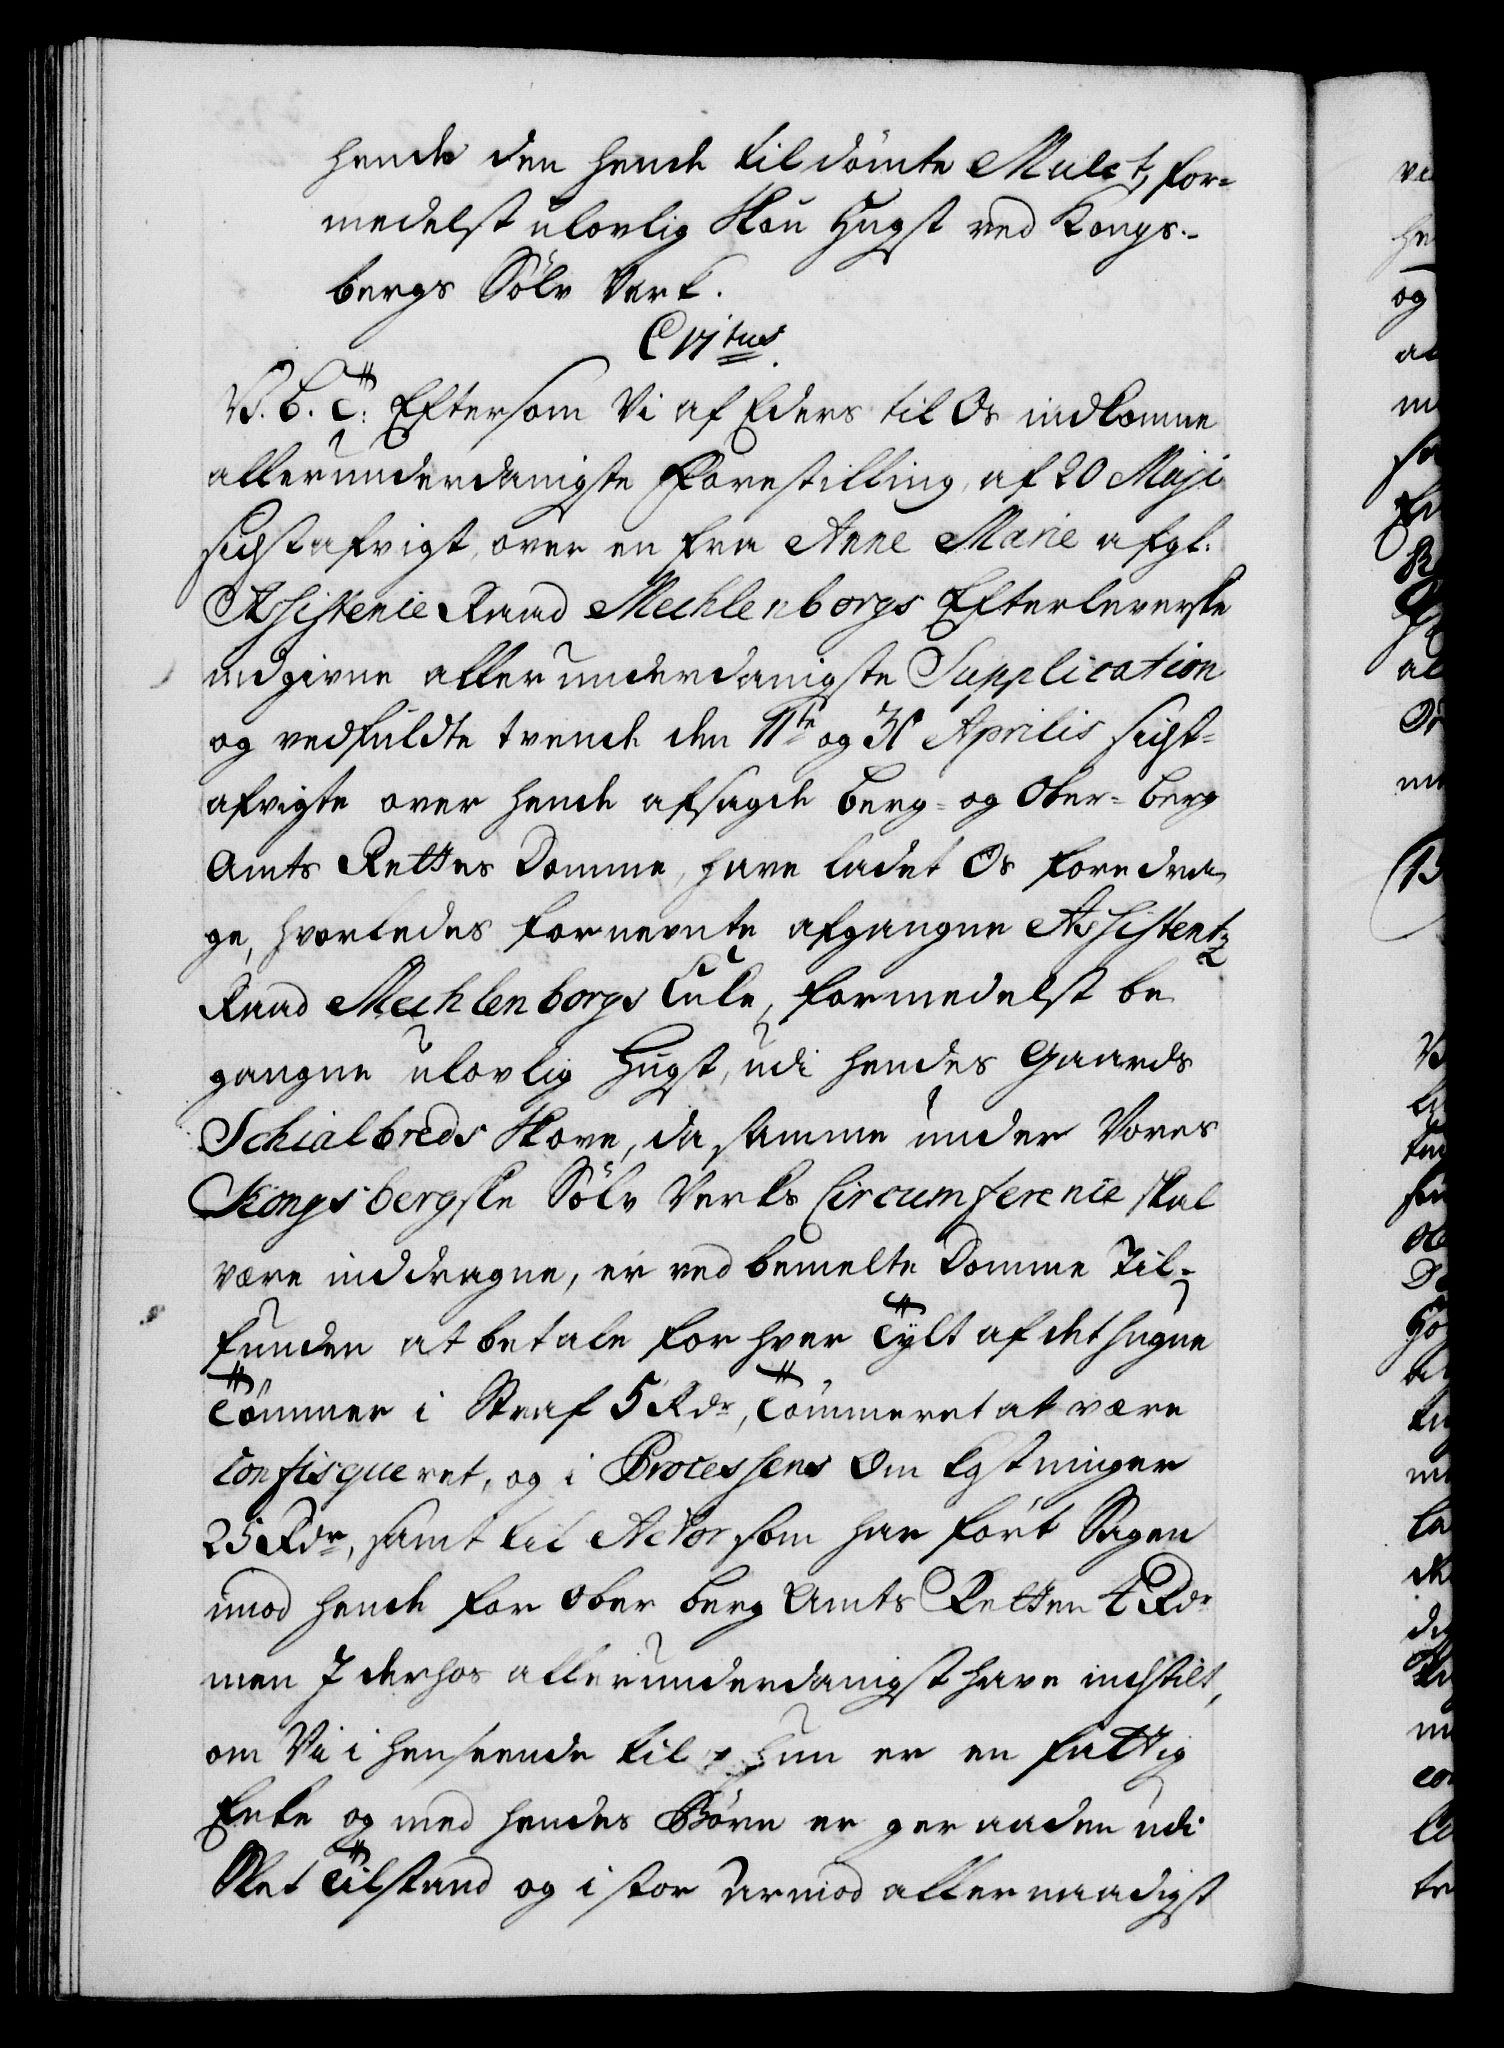 hende den hende tildömte Mulct, for-
medelst ulovlig Skou Hugst ved Kongs-
bergs Sölv Verk.
C VI tus
V. G. T: Eftersom Vi af Eders til Os indkomne
allerunderdanigste Forestilling, af 20 Maji
sidst afvigt, over en fra Anne Marie afgl.
Assistence Raad Mechlenborgs Efterleverske
indgivne allerunderdanigste Supplication
og vedfuldte tvende den 11te og 30 Aprilis sidst-
afvigte over hende afsagde Berg- og Ober- Berg
Amts Rettes Domme, have ladet Os foredra
ge, hvorledes fornevnte afgangne Assistentz
Raad Mechlenborgs Enke, formedelst be
gangne ulovlig Hugst, udi hendes Gaards
Schialbreds Skove, da samme under Vores
Kongsbergske Sölv Verks Circumference skal
være inddragne, er ved bemelte Domme Til-
funden at betale for hver Tylt af det hugne
Tömmer i Straf 5 Rdr, Tömmeret at være
confisqueret, og i Processens Omkostninger
25 Rdr, samt til Actor som har fört Sagen
imod hende for Ober Berg Amts Retten 4 Rdr
men I derhos allerunderdanigst have indstilt,
om Vi i henseende til hun er en fattig
Enke og med hendes Börn er geraaden udi
Slet Tilstand og i stor Armod allernaadigst